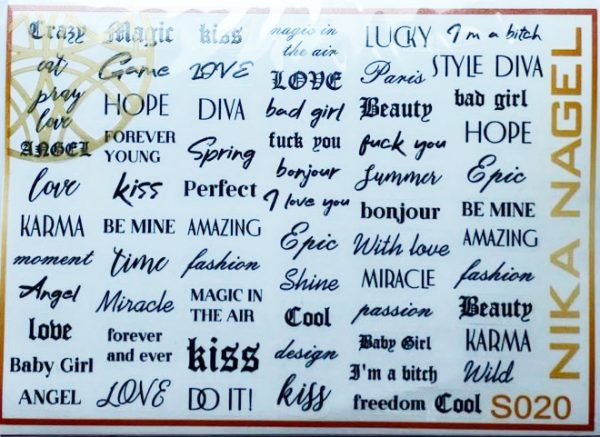 Crazy
eat
pray
love
ANGEL
love
KARMA
moment
Angel
love
Baby Girl
ANGEL
Magic
Game
HOPE
FOREVER
YOUNG
kiss
BE MINE
time
Miracle
forever
and ever
LOVE
kiss
LOVE
DIVA
Spring
Perfect
AMAZING
fashion
MAGIC IN
THE AIR
kiss
DO IT!
magic in
the air
LOVE
bad girl
fuck you
bonjour
I love you
Epic
Shine
Cool
design
kiss
LUCKY
Paris
Beauty
fuck you
Summer
bonjour
With love
MIRACLE
passion
Baby Girl
I'm a bitch
freedom
I'm a bitch
STYLE DIVA
bad girl
HOPE
Epic
BE MINE
AMAZING
fashion
Beauty
KARMA
Wild
Cool
NIKA NAGEL
S020